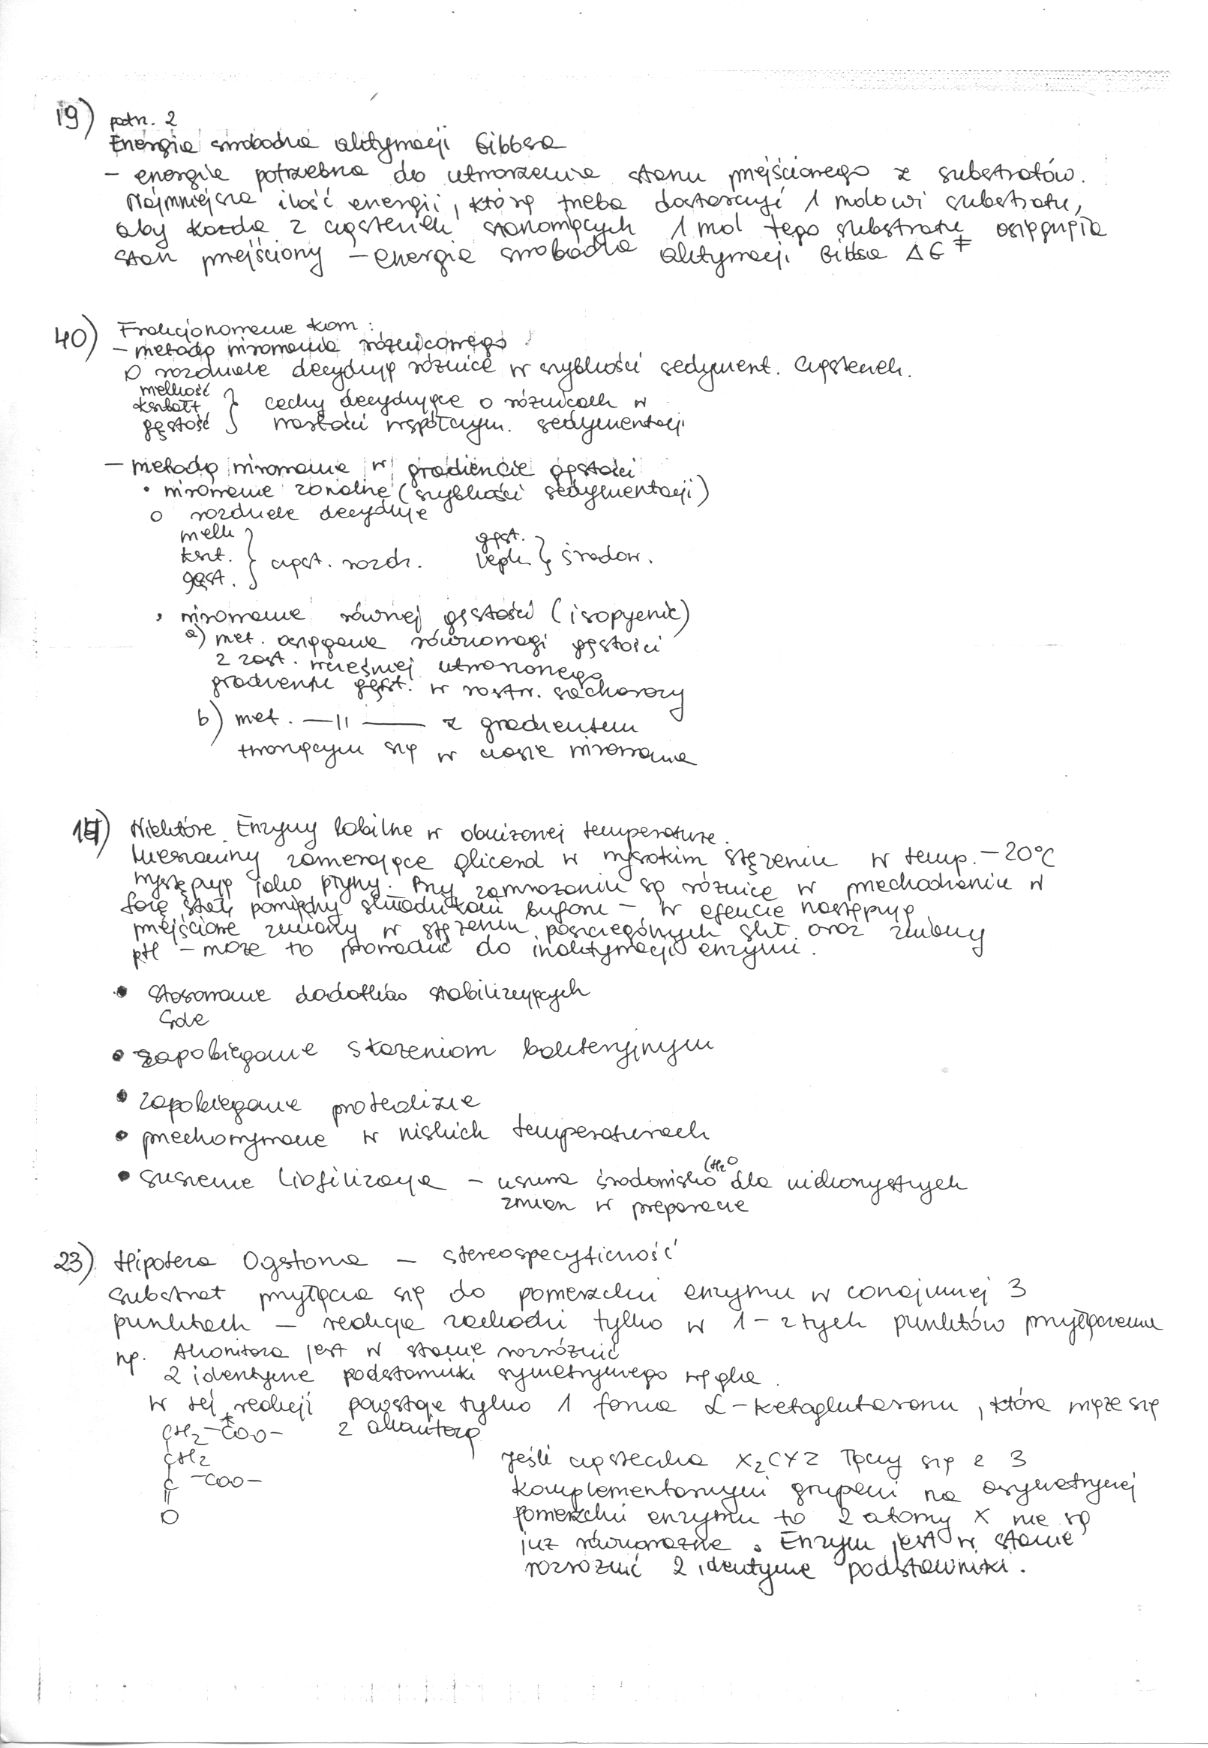 19) patrz. 2
Energia swobodna aktywacji Gibbsa
– energia potrzebna do utworzenia stanu przejściowego z substratów.
Najmniejsza ilość energii, którą trzeba dostarczyć 1 molowi substratu,
aby każda z cząsteczek stanowiących 1 mol tego substratu osiągnęła
stan przejściowy – energia swobodna aktywacji Gibbsa ΔG ‡
40) Frakcjonowanie kom:
– metodą wirowania różnicowego
o rozdziele decydują różnice w szybkości sedyment. cząsteczek.
wielkość
kształt
gęstość } cechy decydujące o różnicach w
wartości współczyn. sedymentacji
– metodą wirowania w gradiencie gęstości
• wirowanie zonalne (szybkości sedymentacji)
o rozdziele decyduje
wielk
kszt.
gęst. } cząst. rozdz.
gęst.
lepk } środow.
• wirowanie równej gęstości (isopyenic)
a) met. osiągania równowagi gęstości
z zast. wcześniej utworzonego
gradientu gęst. w roztw. sacharozy
b) met. —||— z gradientem
tworzącym się w czasie wirowania
Niektóre Enzymy labilne w obniżonej temperaturze.
Mieszaniny zawierające glicerol w wysokim stężeniu w temp. –20°C
występują jako płyny. Przy zamrożeniu są różnice w przechodzeniu w
fazę stałą pomiędzy składnikami buforu – w efekcie następują
przejściowe zmiany w stężeniu poszczególnych skł. oraz zmiany
pH – może to prowadzić do inaktywacji enzymu.
• Stosowanie dodatków stabilizujących
• zapobieganie skażeniom bakteryjnym
• zapobieganie proteolizie
• przechowywanie w niskich temperaturach
• suszenie liofilizacja – usuwa środowisko (H2O dla niekorzystnych
zmian w preparacie
23) Hipoteza Ogstona – stereospecyficność
Substrat przyłącza się do powierzchni enzymu w conajmniej 3
punktach – reakcja zachodzi tylko w 1 – z tych punktów przyłączenia
np. Akonitaza jest w stanie rozróżnić
2 identyczne podstawniki symetrycznego węgla.
W tej reakcji powstaje tylko 1 forma α-ketoglutaranu, która może się
CH2–C*OO– z akonitazą
CH2
C –COO–
||
O
Jeśli cząsteczka X2CYZ łączy się z 3
komplementarnymi grupami na asymetrycznej
powierzchni enzymu to 2 atomy X nie są
już równoważne. Enzym jest w stanie
rozróżnić 2 identyczne podstawniki.